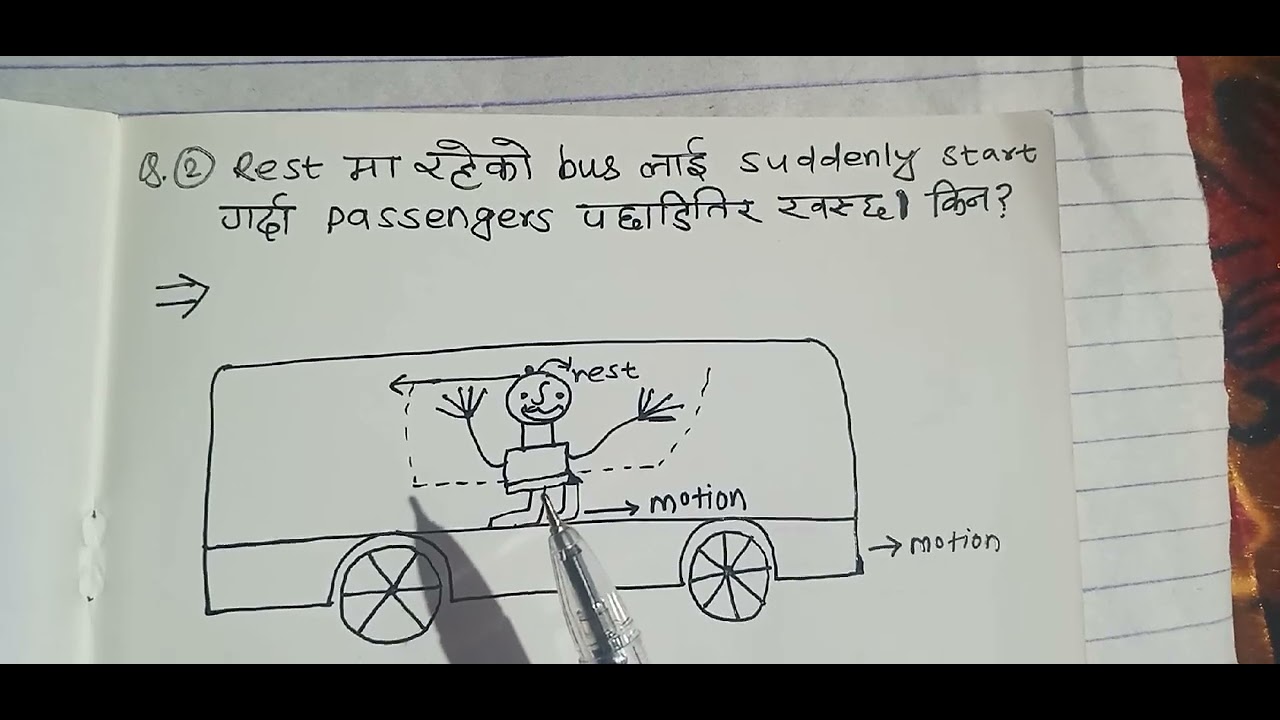 Q.② Rest मा रहेको bus लाई suddenly start
गर्दा passengers पछाडितिर खस्छ। किन?
⇒
rest
→ motion
→ motion